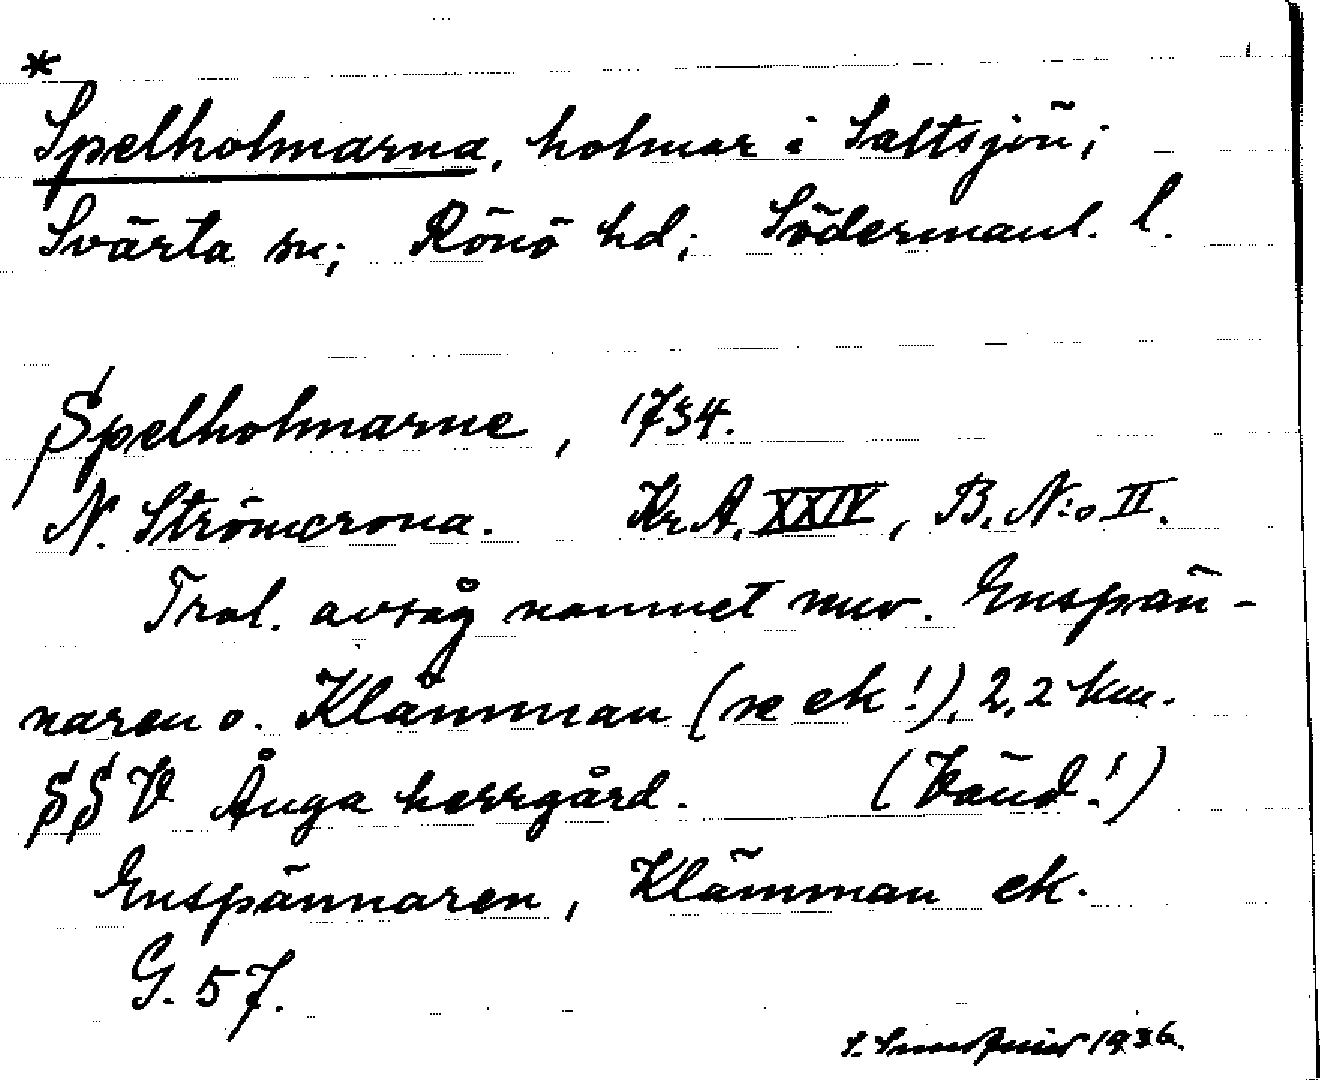 *
Spelholmarna, holmar i Saltsjön;
Svärta sn; Rönö hd; Södermanl. l.
Spelholmarne, 1734.
N. Strömcrona. Kr. A. XXIV, B. N:o II.
Trol. avsåg namnet nuv. Enspän-
naren o. Klämman (se ek!), 2,2 km.
SSV Ånga herrgård. (Vänd!)
Enspännaren, Klämman ek.
G. 57.
1936.